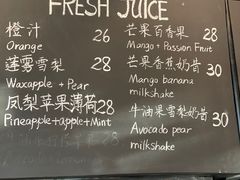 FRESH JUICE
橙汁 26
Orange
莲雾雪梨 28
Waxapple + Pear
凤梨苹果薄荷 28
Pineapple+apple+Mint
芒果百香果 28
Mango + Passion Fruit
芒果香蕉奶昔 30
Mango banana
milkshake
牛油果雪梨奶昔 30
Avocado pear
milkshake